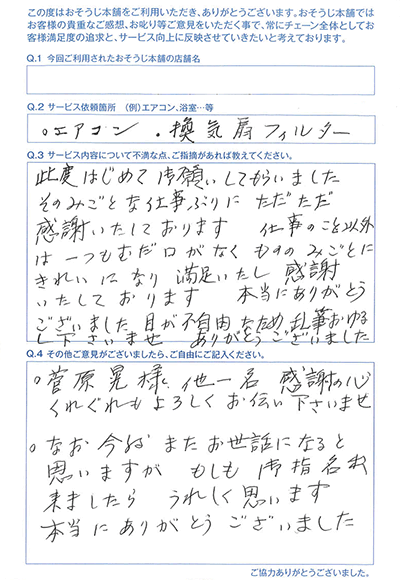 この度はおそうじ本舗をご利用いただき、ありがとうございます。おそうじ本舗では
お客様の貴重なご感想、お叱り等ご意見をいただく事で、常にチェーン全体としてお
客様満足度の追求と、サービス向上に反映させていきたいと考えております。
Q.1 今回ご利用されたおそうじ本舗の店舗名
Q.2 サービス依頼箇所 (例)エアコン、浴室…等
○エアコン ・換気扇フィルター
Q.3 サービス内容について不満な点、ご指摘があれば教えてください。
此度はじめて御願いしてもらいました
そのみごとな仕事ぶりに ただただ
感謝いたしております 仕事のこと以外
は一つもむだ口がなく ものの みごとに
きれいになり 満足いたし 感謝
いたしております 本当にありがとう
ございました 目が不自由なため 乱筆おゆる
し下さいませ ありがとうございました
Q.4 その他ご意見がございましたら、ご自由にご記入ください。
○菅原晃様 他一名 感謝の心
くれぐれもよろしく お伝い下さいませ
○なお 今後 またお世話になると
思いますが もしも 御指名出
来ましたら うれしく思います
本当にありがとうございました
ご協力ありがとうございました。